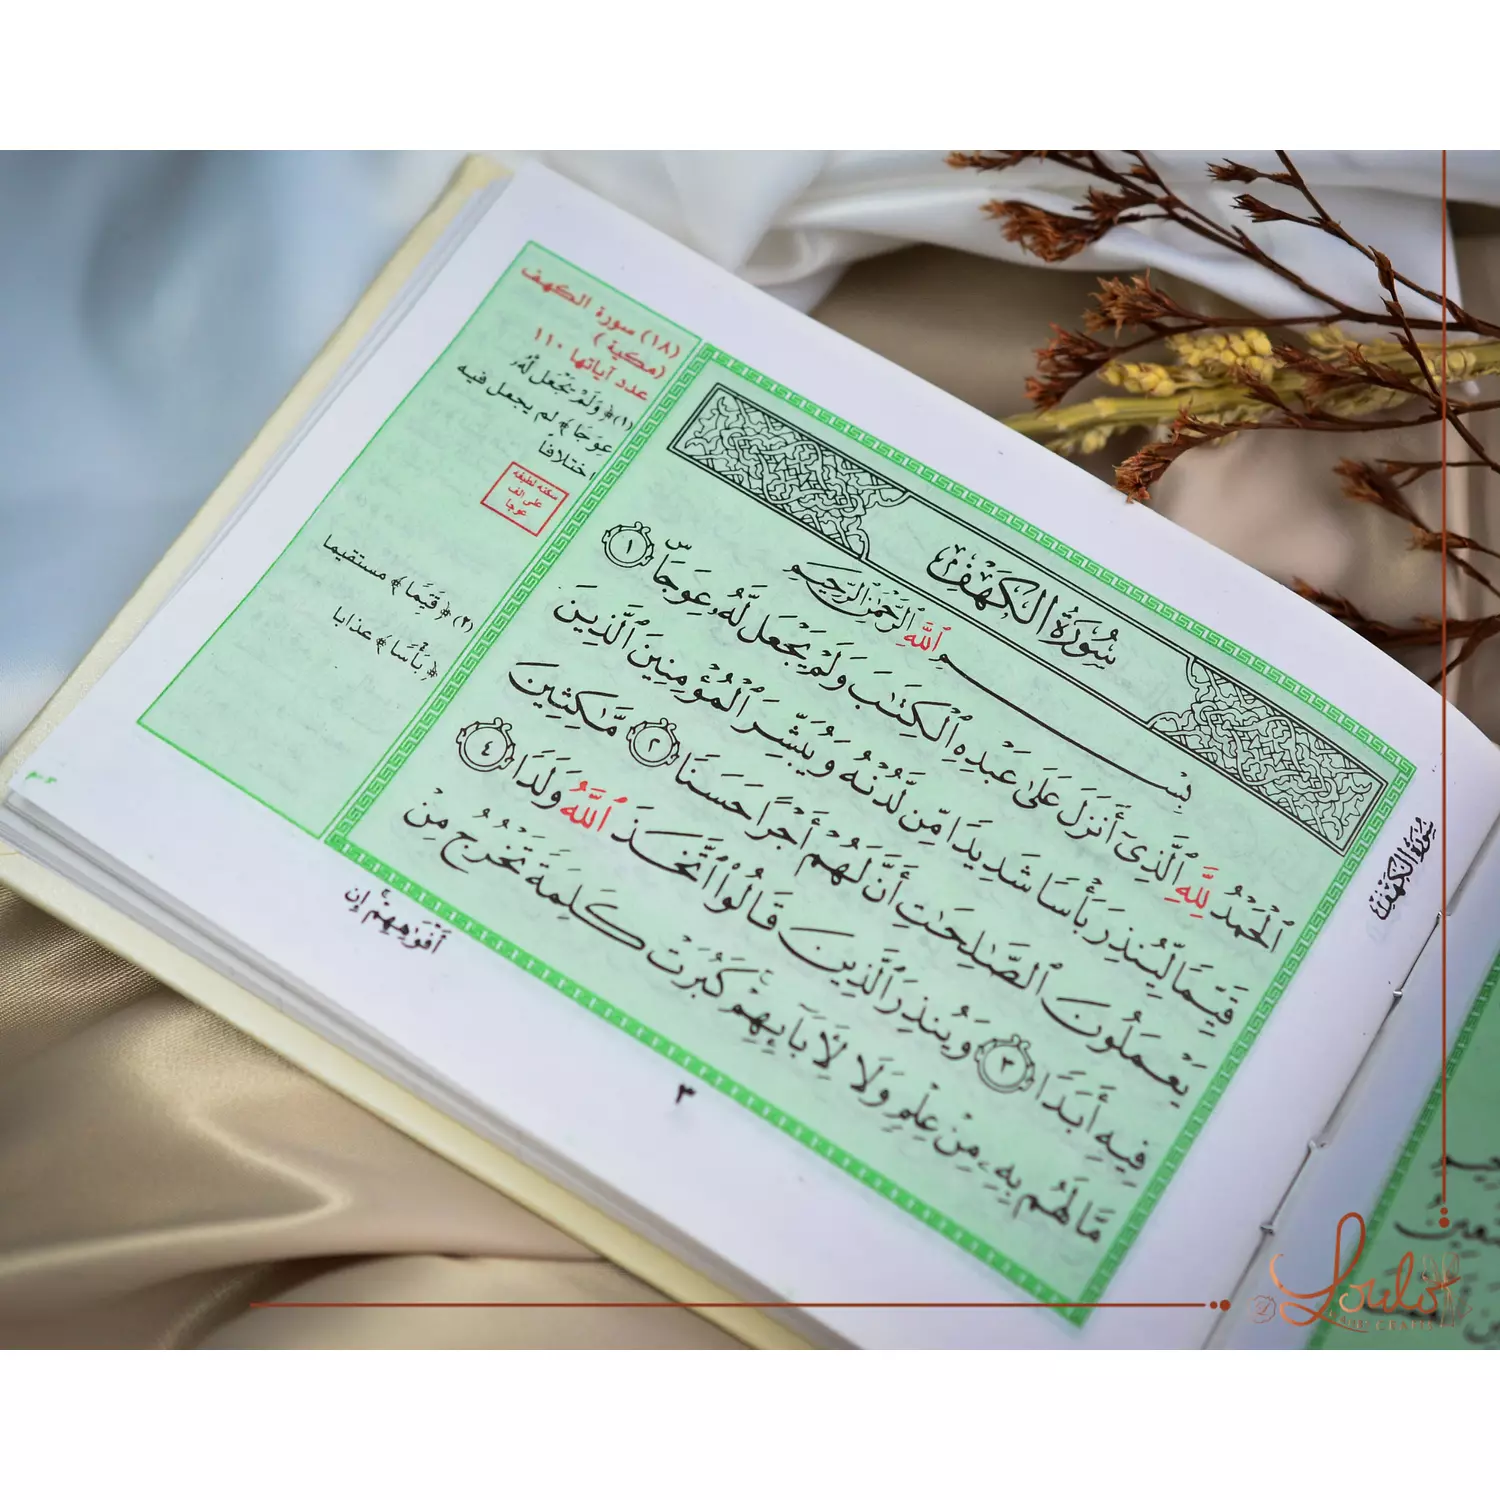 سُورَةُ الكَهْفِ
بِسْمِ ٱللَّهِ ٱلرَّحْمَٰنِ ٱلرَّحِيمِ
ٱلْحَمْدُ لِلَّهِ ٱلَّذِىٓ أَنزَلَ عَلَىٰ عَبْدِهِ ٱلْكِتَٰبَ وَلَمْ يَجْعَل لَّهُۥ عِوَجَاۜ ١
قَيِّمًا لِّيُنذِرَ بَأْسًا شَدِيدًا مِّن لَّدُنْهُ وَيُبَشِّرَ ٱلْمُؤْمِنِينَ ٱلَّذِينَ
يَعْمَلُونَ ٱلصَّٰلِحَٰتِ أَنَّ لَهُمْ أَجْرًا حَسَنًا ٢ مَّٰكِثِينَ
فِيهِ أَبَدًا ٣ وَيُنذِرَ ٱلَّذِينَ قَالُوا۟ ٱتَّخَذَ ٱللَّهُ وَلَدًا ٤
مَّا لَهُم بِهِۦ مِنْ عِلْمٍ وَلَا لِأٓبَآئِهِمْ كَبُرَتْ كَلِمَةً تَخْرُجُ مِنْ
أَفْوَٰهِهِمْ إِن
٣
سُورَةُ الكَهْفِ
(١٨) سورة الكهف
(مكية)
عدد آياتها ١١٠
(١) ﴿وَلَمْ يَجْعَل لَّهُۥ
عِوَجًا﴾ لم يجعل فيه
اختلافاً
سكته لطيفه
على الف
عوجا
(٢) ﴿قَيِّمًا﴾ مستقيما
﴿بَأْسًا﴾ عذابا